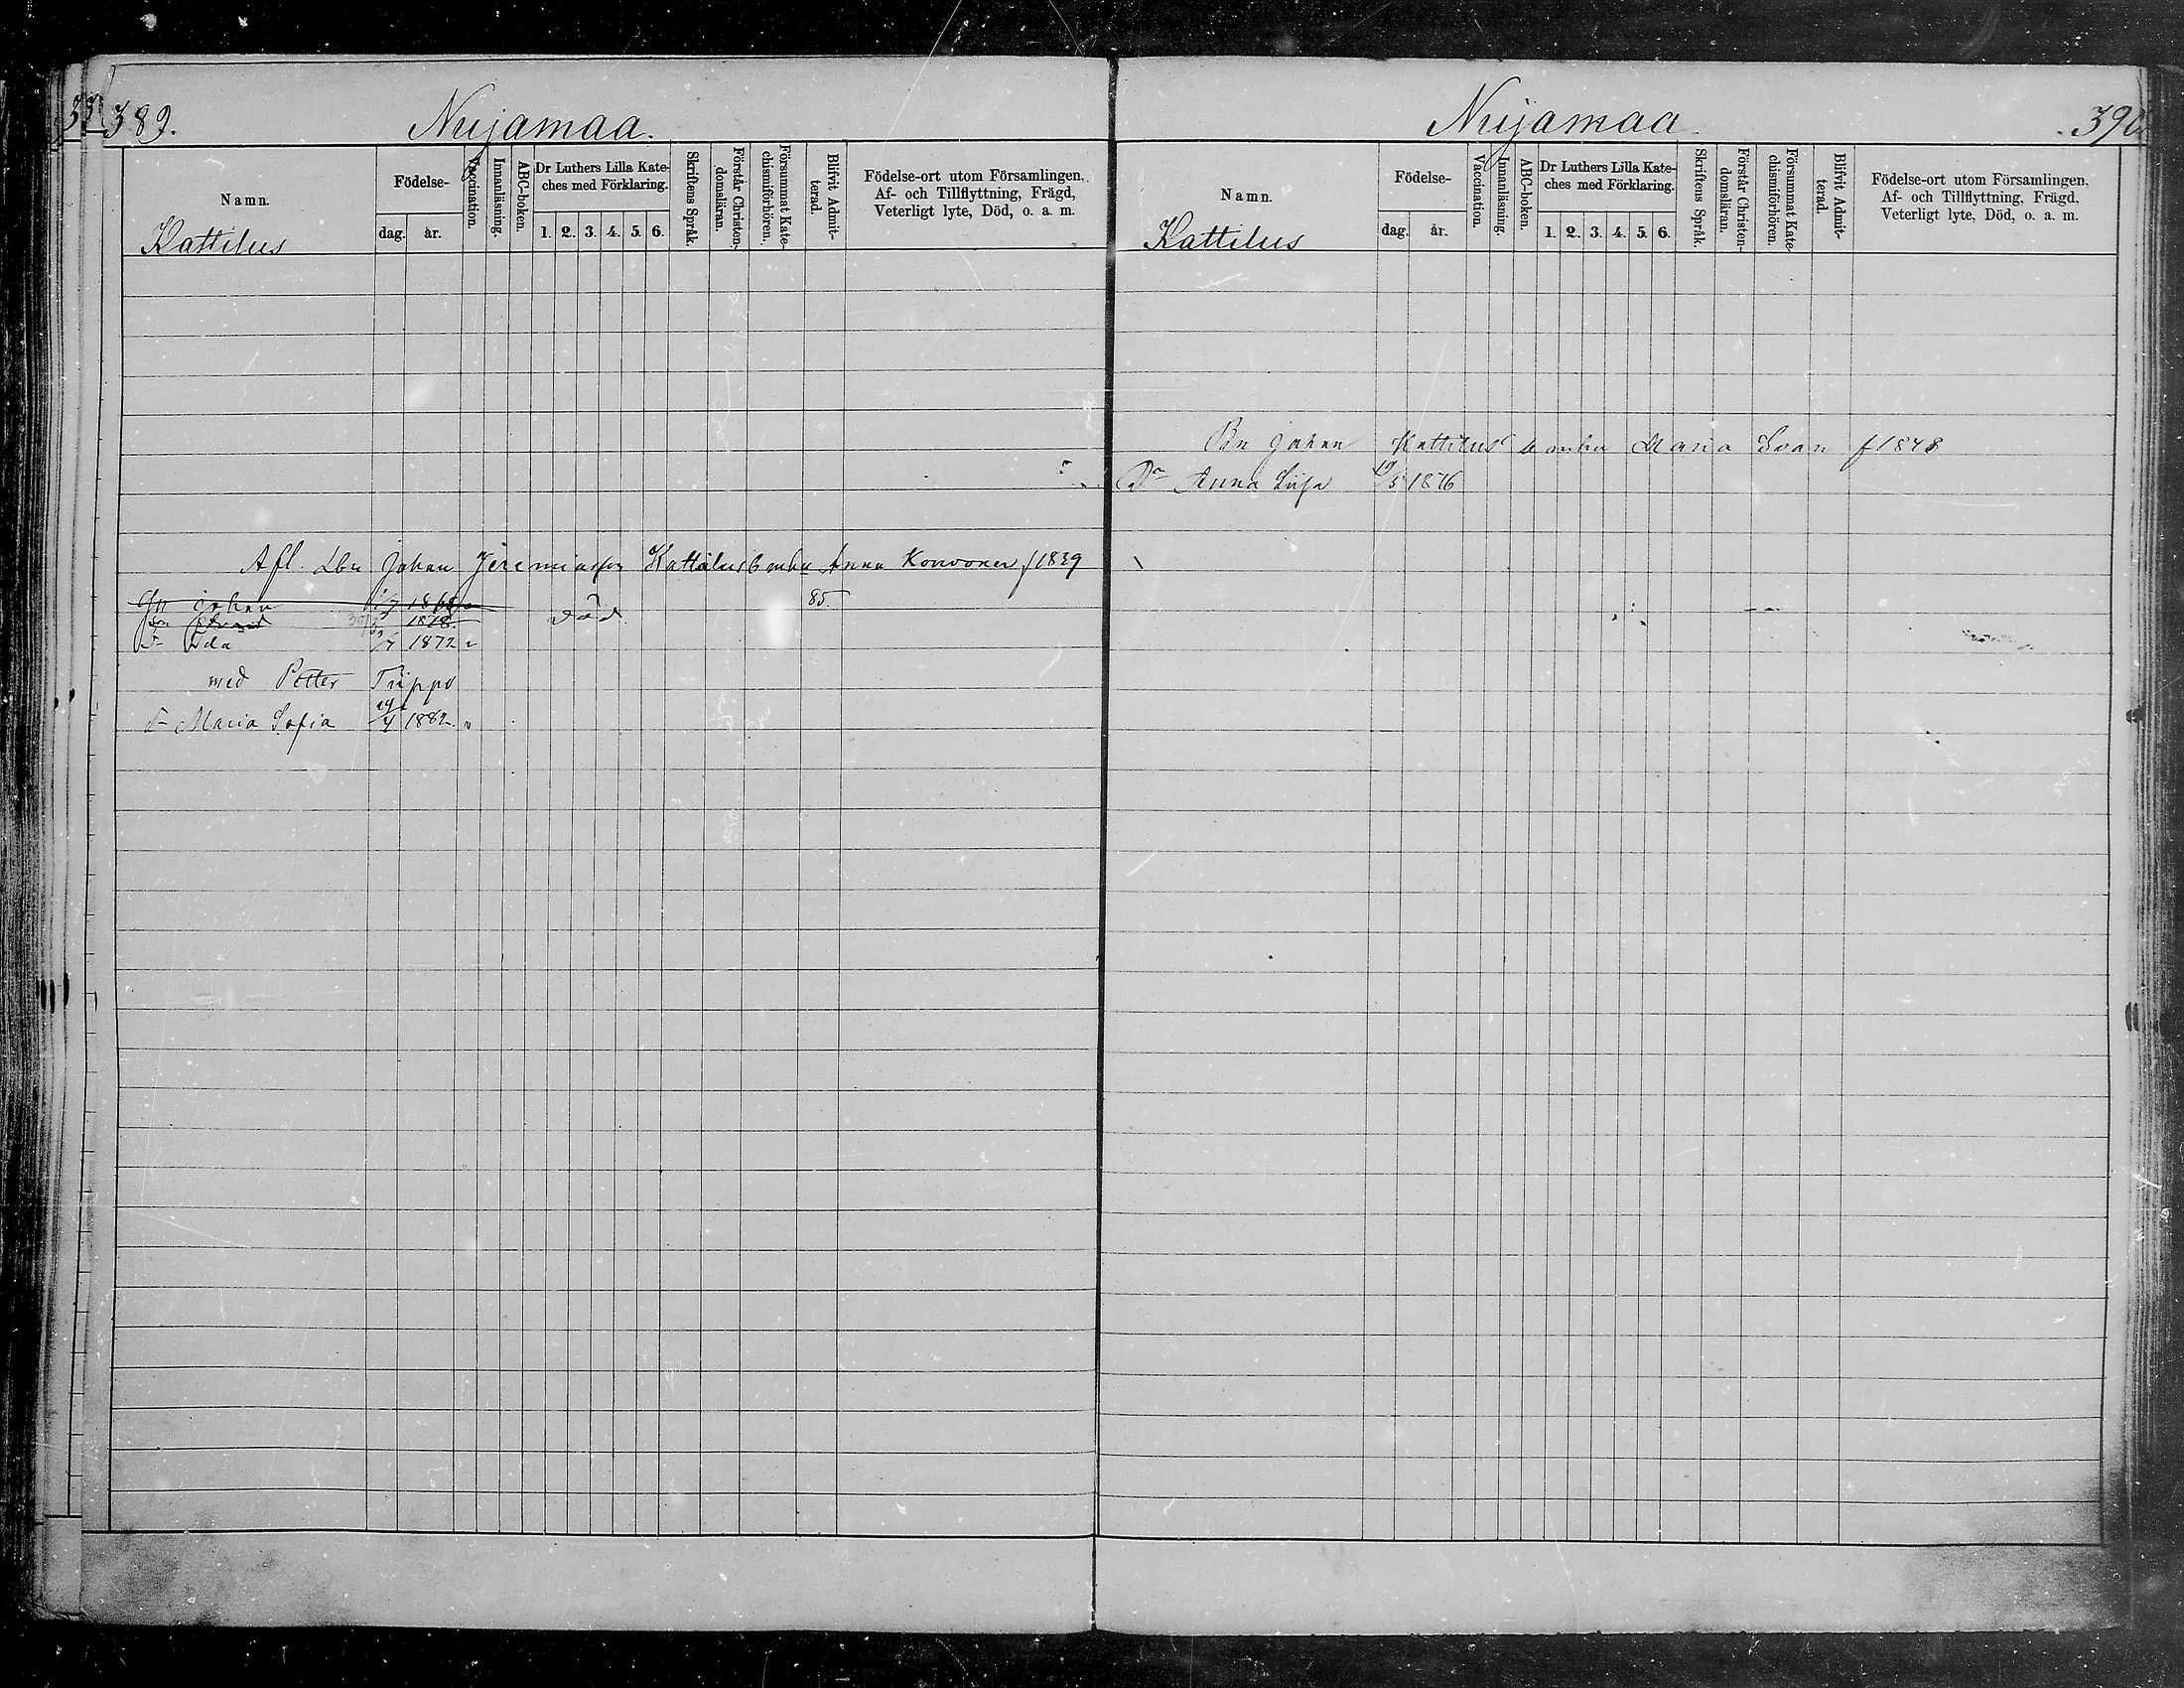 389.
Nuijamaa.
Namn.
Födelse-
dag. år.
Vaccination.
Innanläsning.
ABC-boken.
Dr Luthers Lilla Kate-
ches med Förklaring.
1. 2. 3. 4. 5. 6.
Skriftens Språk.
Förstår Christen-
domsläran.
Försummat Kate-
chismiförhören.
Blifvit Admit-
terad.
Födelse-ort utom Församlingen,
Af- och Tillflyttning, Frägd,
Veterligt lyte, Död, o. a. m.
Kattilus
Afl. Lbn Johan Jeremiasson Kattilus enka Anna Konvonen f 1839
Gn johan 1868 85.
1878 död
Ida 1872
med Petter Trippo
Maria Sofia 4 1882
Nuijamaa
390
Namn.
Födelse-
dag. år.
Vaccination.
Innanläsning.
ABC-boken.
Dr Luthers Lilla Kate-
ches med Förklaring.
1. 2. 3. 4. 5. 6.
Skriftens Språk.
Förstår Christen-
domsläran.
Försummat Kate-
chismiförhören.
Blifvit Admit-
terad.
Födelse-ort utom Församlingen,
Af- och Tillflyttning, Frägd,
Veterligt lyte, Död, o. a. m.
Kattilus
Bn Johan Kattilus Maria Svan f 1848
Dr Anna Liisa 19/5 1876